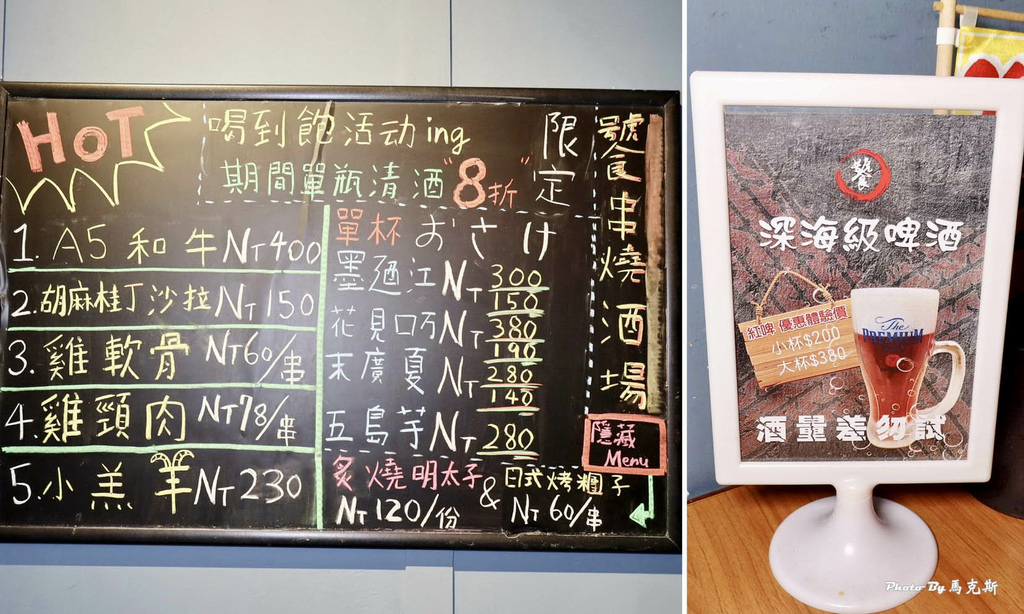 HOT
喝到飽活动ing
期間單瓶清酒"8折"
限定
饕串燒酒場
1. A5 和牛 NT400
2. 胡麻桂丁沙拉 NT150
3. 雞軟骨 NT60/串
4. 雞頸肉 NT78/串
5. 小羔羊 NT230
單杯おさけ
墨廼江 NT 300
150
花見ロ万 NT 380
190
末廣夏 NT 280
140
五島芋 NT 280
隱藏
Menu
炙燒明太子
NT 120/份
&
日式烤糰子
NT 60/串
饕
深海級啤酒
紅啤 優惠體驗價
小杯$200
大杯$380
The
PREMIUM
酒量差勿試
Photo By 馬克斯